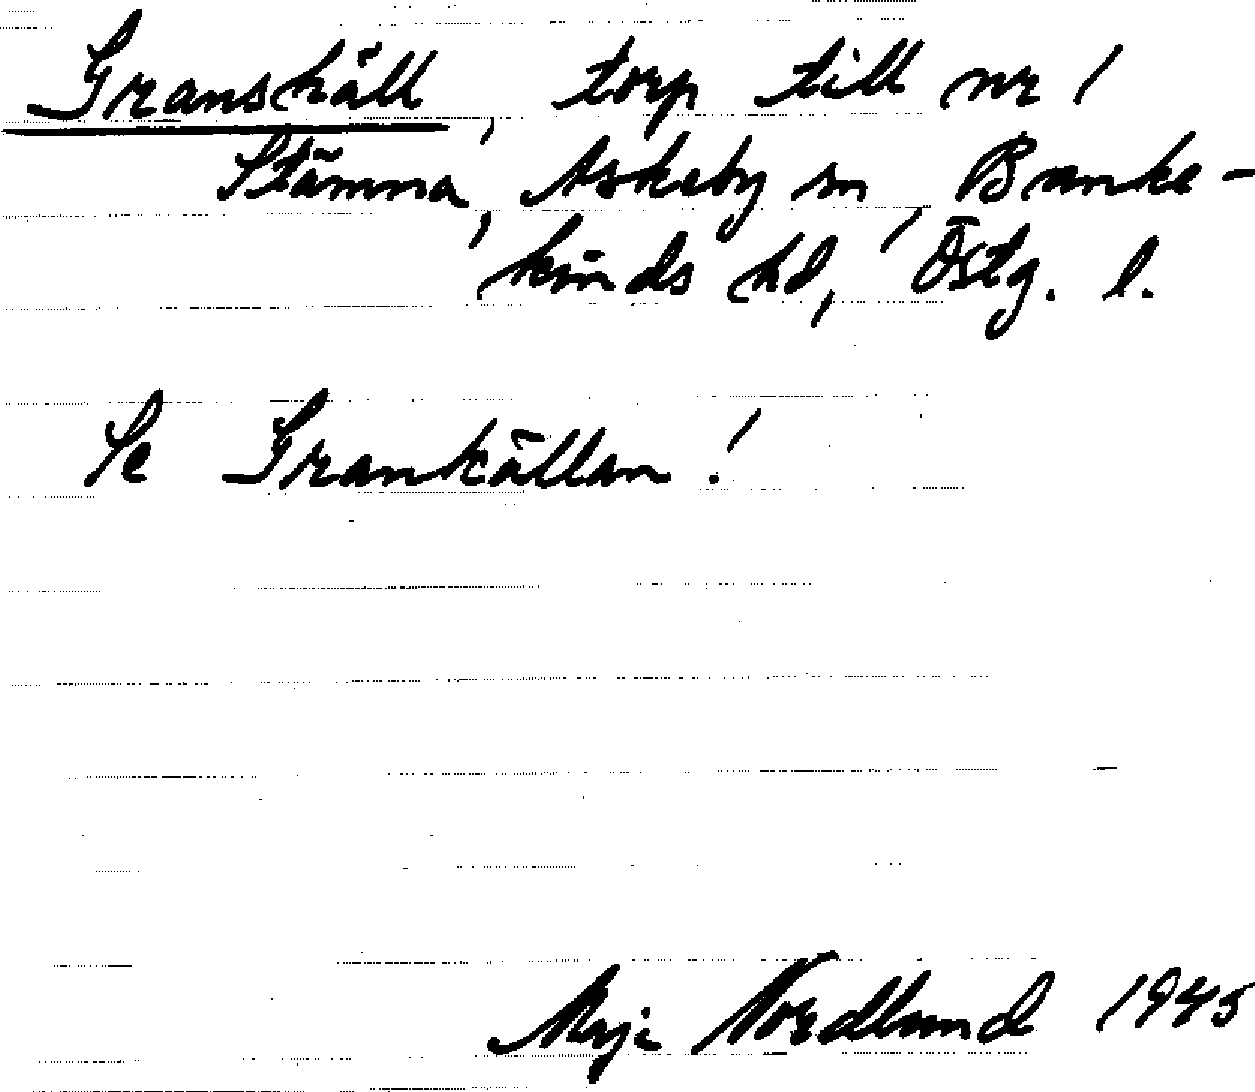 Granskäll, torp till nr 1
Stämma, Askeby sn, Banke-
kinds hd, Östg. l.
Se Grankällan!
Maja Nordlund 1945